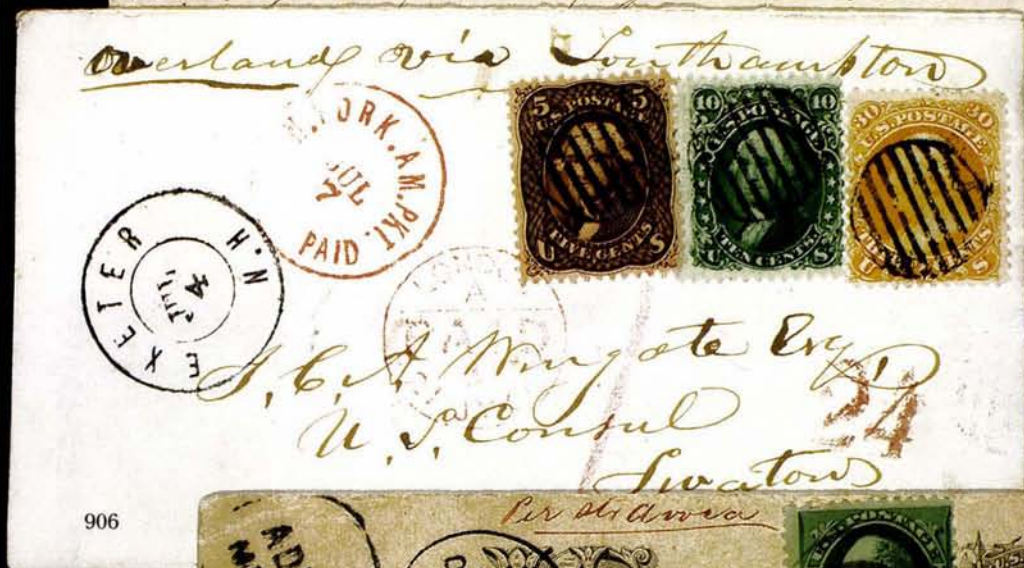 overland via Southampton
N. YORK. AM. PKT.
JUL
7
PAID
5 5
U.S. POSTAGE
FIVE CENTS
U S
10 10
U.S. POSTAGE
TEN CENTS
U S
30 30
U.S. POSTAGE
THIRTY CENTS
U S
EXETER N.H
JUL
4
PAID
J. C. A. Wingate Esq,
U. S. Consul
Swatow
24
906